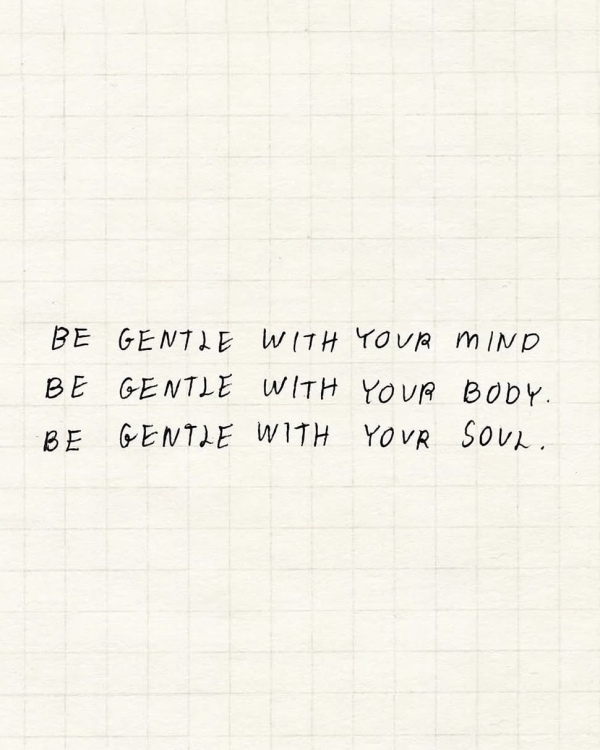 BE GENTLE WITH YOUR MIND
BE GENTLE WITH YOUR BODY.
BE GENTLE WITH YOUR SOUL.